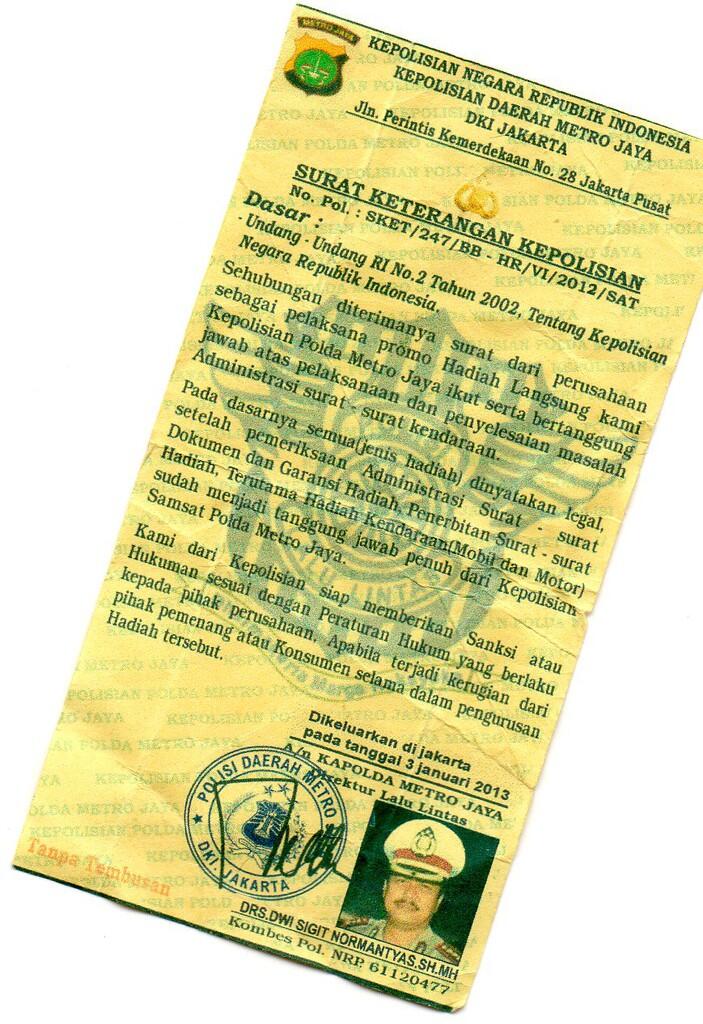 METRO JAYA
KEPOLISIAN NEGARA REPUBLIK INDONESIA
KEPOLISIAN DAERAH METRO JAYA
DKI JAKARTA
Jln. Perintis Kemerdekaan No. 28 Jakarta Pusat
SURAT KETERANGAN KEPOLISIAN
No. Pol. : SKET/247/BB - HR/VI/2012/SAT
Dasar :
- Undang - Undang RI No.2 Tahun 2002, Tentang Kepolisian
Negara Republik Indonesia.
Sehubungan diterimanya surat dari perusahaan
sebagai pelaksana promo Hadiah Langsung kami
Kepolisian Polda Metro Jaya ikut serta bertanggung
jawab atas pelaksanaan dan penyelesaian masalah
Administrasi surat - surat kendaraan.
Pada dasarnya semua(jenis hadiah) dinyatakan legal,
setelah pemeriksaan Administrasi Surat - surat
Dokumen dan Garansi Hadiah, Penerbitan Surat - surat
Hadiah, Terutama Hadiah Kendaraan(Mobil dan Motor)
sudah menjadi tanggung jawab penuh dari Kepolisian
Samsat Polda Metro Jaya.
Kami dari Kepolisian siap memberikan Sanksi atau
Hukuman sesuai dengan Peraturan Hukum yang berlaku
kepada pihak perusahaan, Apabila terjadi kerugian dari
pihak pemenang atau Konsumen selama dalam pengurusan
Hadiah tersebut.
Dikeluarkan di jakarta
pada tanggal 3 januari 2013
A/n KAPOLDA METRO JAYA
Direktur Lalu Lintas
POLISI DAERAH METRO
DKI JAKARTA
Tanpa Tembusan
DRS.DWI SIGIT NORMANTYAS.SH.MH
Kombes Pol. NRP. 61120477